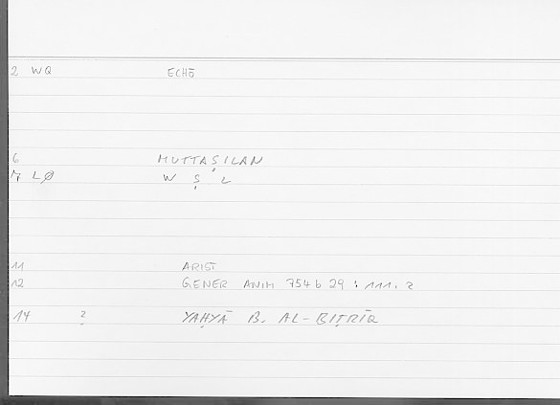 2 WQ ECHŌ
6 MUTTAṢILAN
7 LØ W Ṣ L
11 ARIST
12 GENER ANIM 754 b 29 : 111. 2
14 ? YAḤYĀ B. AL-BIṬRĪQ